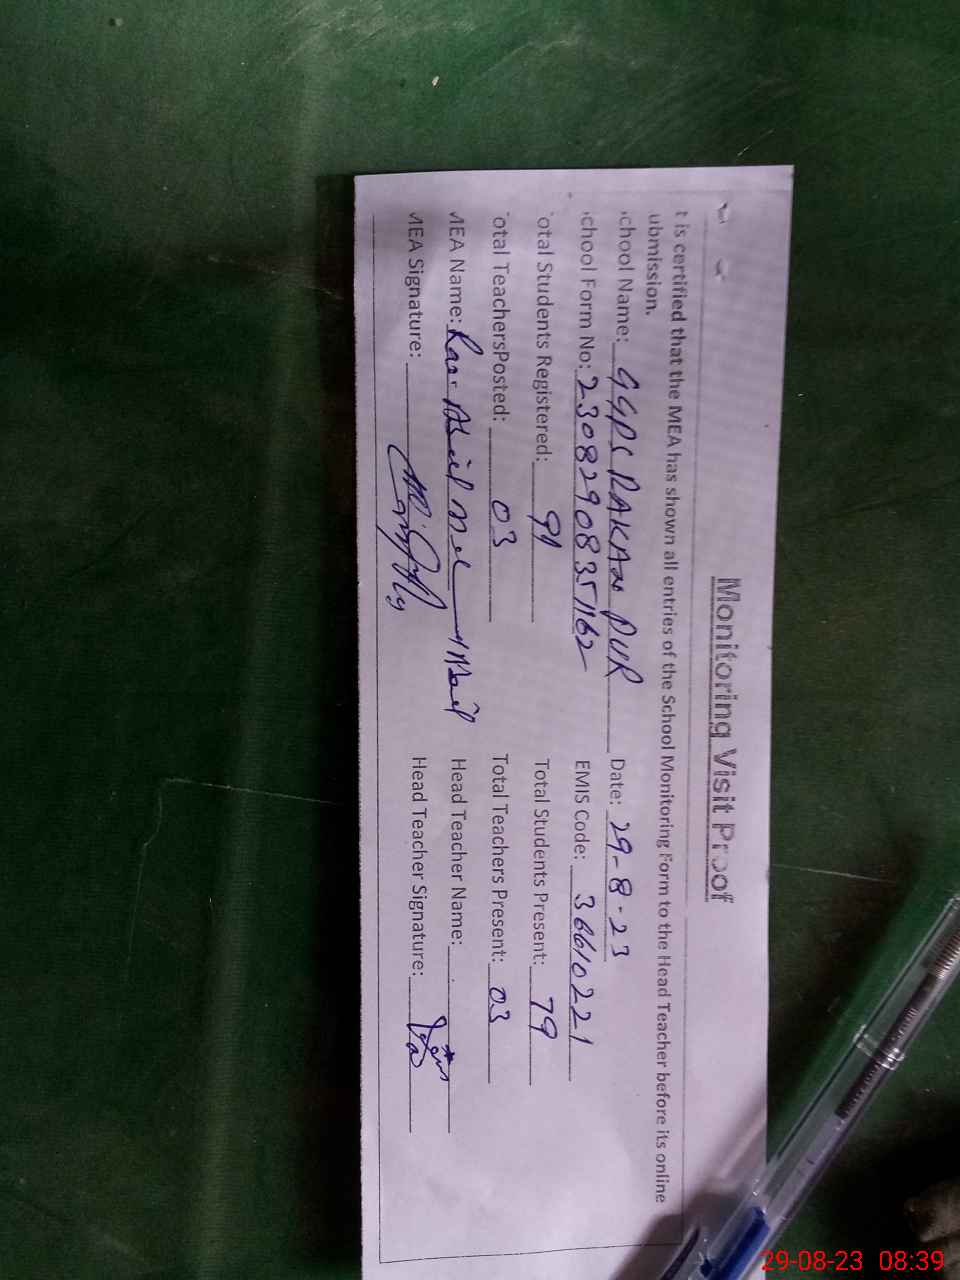 Monitoring Visit Proof
t is certified that the MEA has shown all entries of the School Monitoring Form to the Head Teacher before its online
ubmission.
chool Name: GGPS RAKAN PUR Date: 29-8-23
chool Form No: 23082908351162 EMIS Code: 36610221
otal Students Registered: 91 Total Students Present: 79
otal TeachersPosted: 03 Total Teachers Present: 03
MEA Name: Head Teacher Name:
MEA Signature: Head Teacher Signature:
29-08-23 08:39